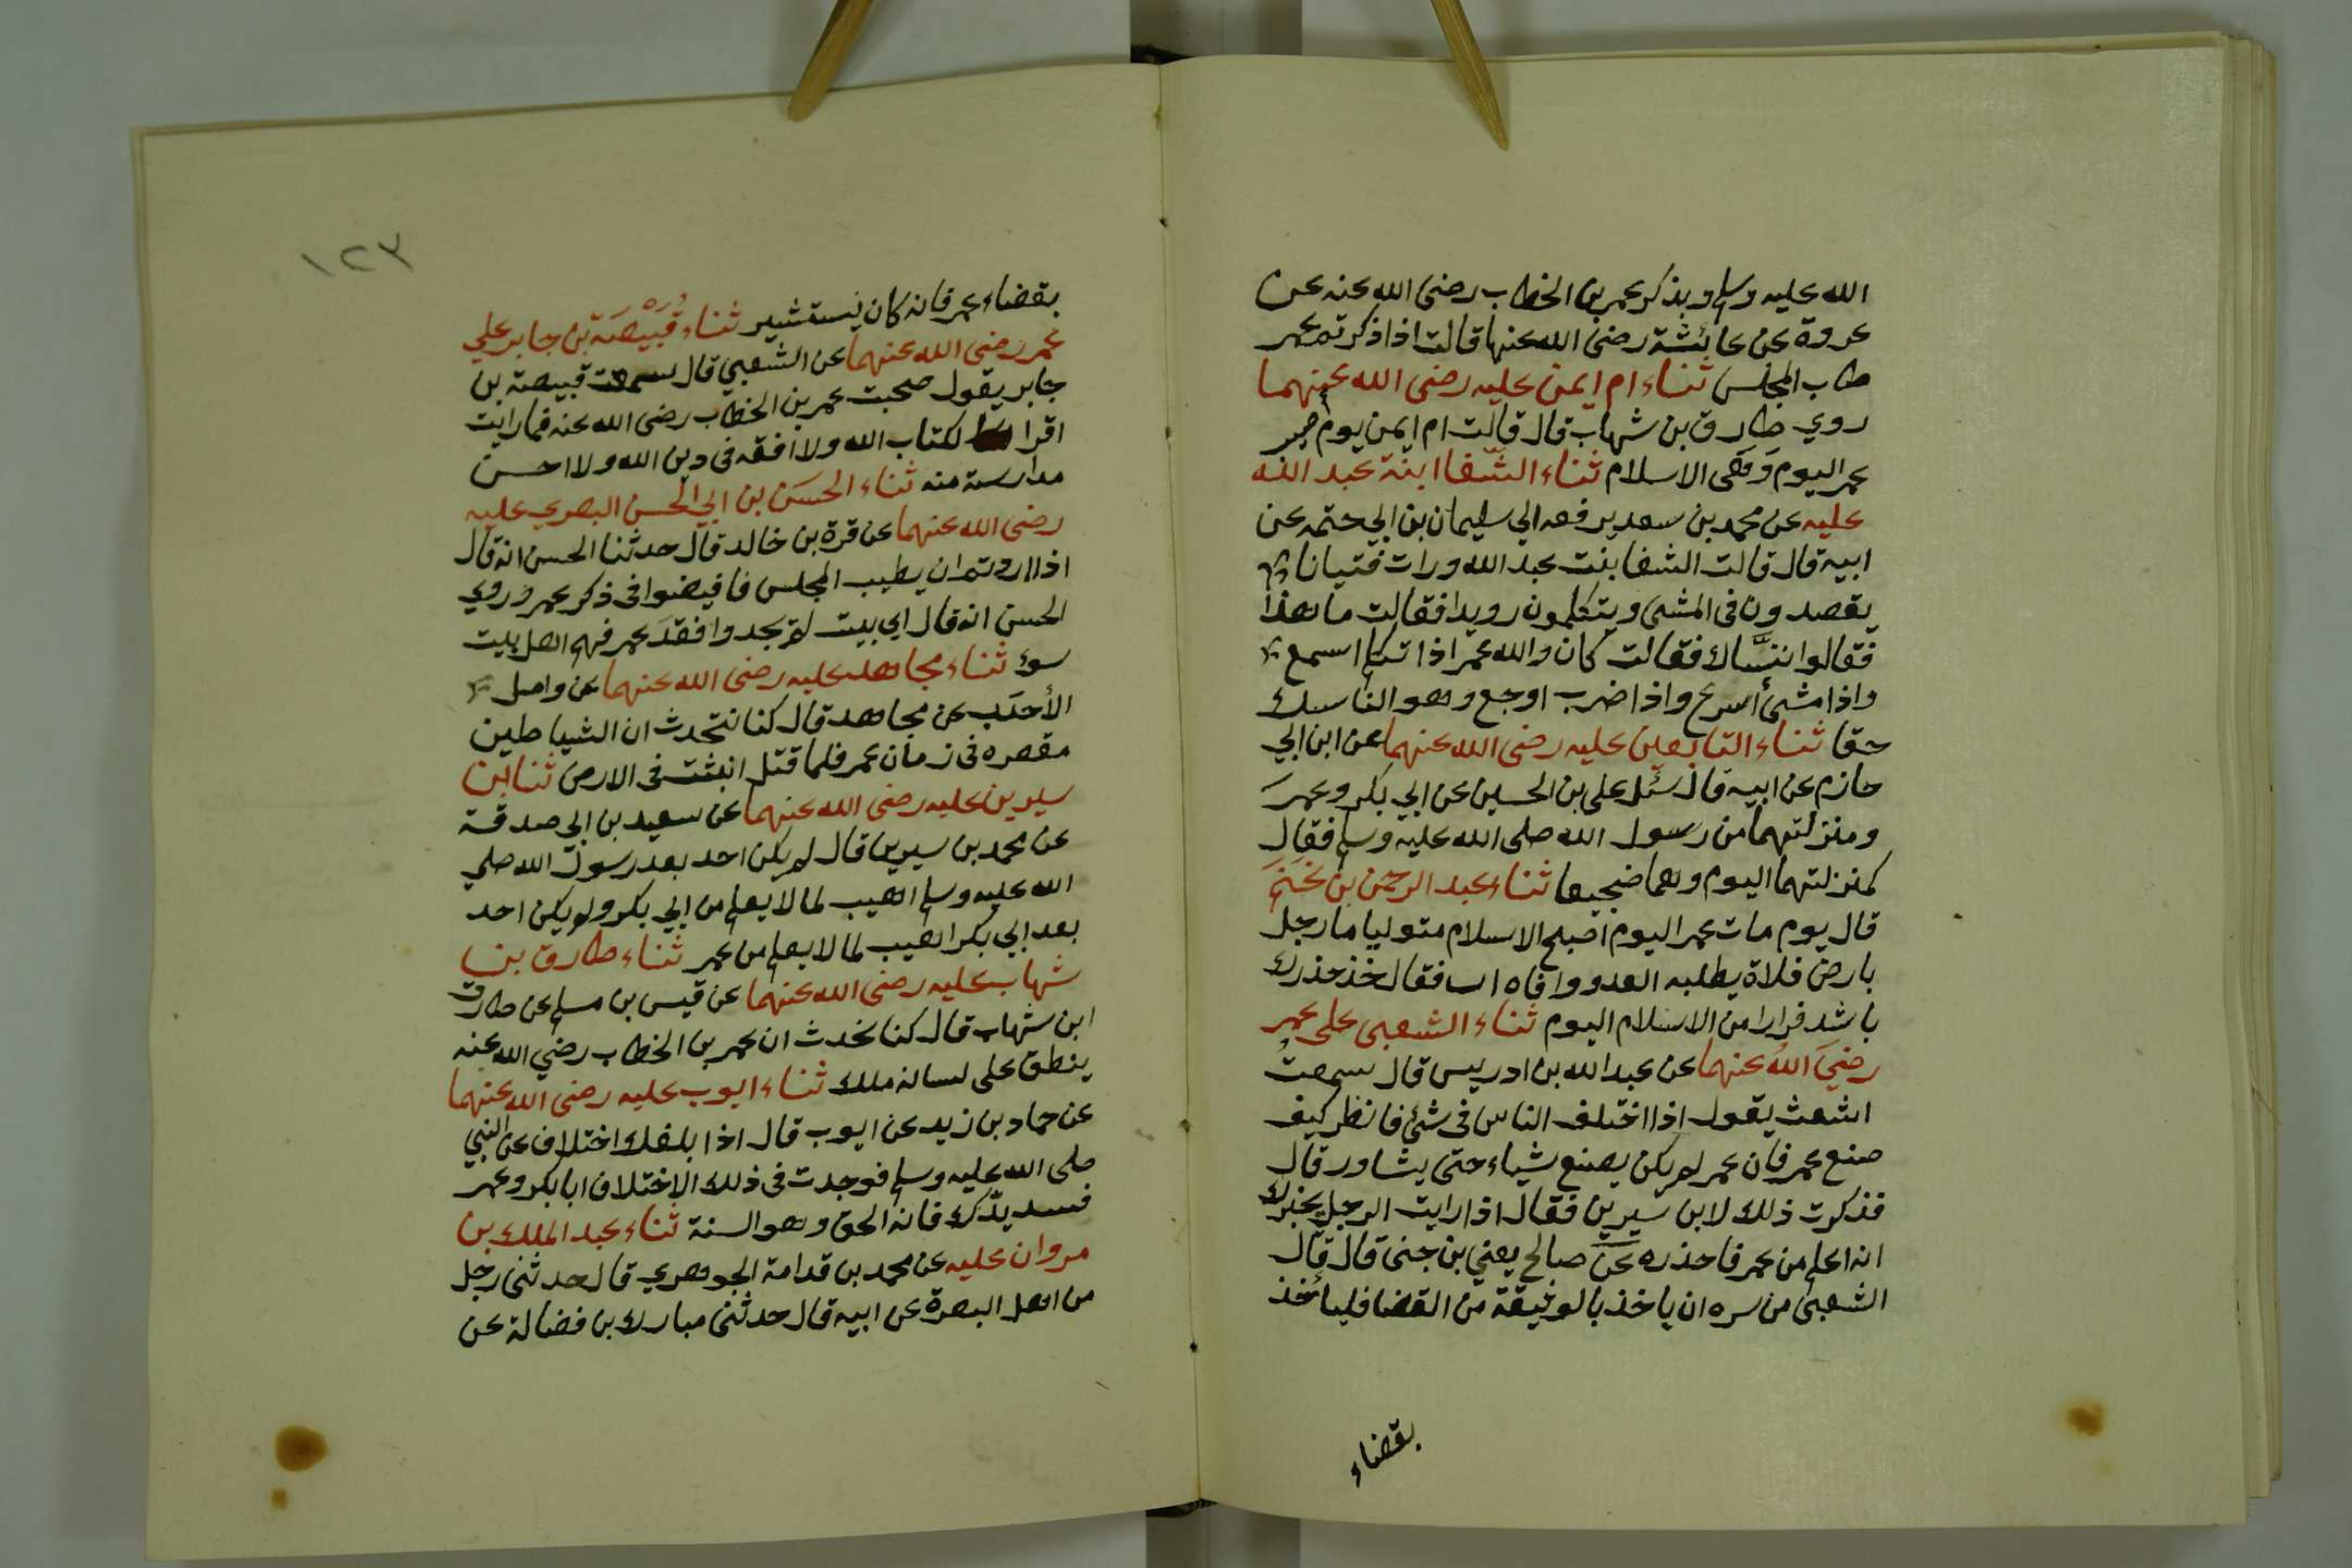 الله عليه وسلم وبذكر عمر بن الخطاب رضى الله عنه عن
عروة عن عائشة رضى الله عنها قالت اذا ذكرتم عمر
طاب المجلس ثناء ام ايمن عليه رضى الله عنهما
روي طارق بن شهاب قال قالت ام ايمن يوم
عمر اليوم وَهَى الاسلام ثناء الشّفا ابنة عبد الله
عليه عن محمد بن سعد يرفعه الي سليمان بن ابي حتمه عن
ابيه قال قالت الشفا بنت عبد الله ورات فتيانا
يقصدون فى المشى ويتكلمون رويدا فقالت ما هذا
فقالوا نسَّاك فقالت كان والله عمر اذا تكلم اسمع
واذا مشىٔ اسرع واذا ضرب اوجع وهو الناسك
حقا ثناء التابعين عليه رضى الله عنهما عن ابن ابي
حازم عن ابيه قال سئل على بن الحسين عن ابي بكر وعمر
ومنزلتهما من رسول الله صلى الله عليه وسلم فقال
كمنزلتهما اليوم وهما ضجيعا ثناء عبد الرحمن بن غَنَم
قال يوم مات عمر اليوم اصبح الاسلام متوليا ما رجل
بارض فلاة يطلبه العدو واتاه ات فقال خذ حذرك
باشد فرارا من الاسلام اليوم ثناء الشعبى على عمر
رضيَ اللهُ عنهما عن عبد الله بن ادريس قال سمعتُ
اشعث يقول اذا اختلف الناس فى شئ فانظر كيف
صنع عمر فان عمر لم يكن يصنع شياء حتى يشاور قال
فذكرت ذلك لابن سيرين فقال اذا رايت الرجل يخبرك
انه اعلم من عمر فاحذره عن صالح يعني بن جنى قال قال
الشعبى من سره ان ياخذ بالوثيقة من القضا فليأخذ
بقضاء
١٢٣
بقضاء عمر فانه كان يستشير ثناء قُبَيْصَة بن جابر علي
عمر رضى الله عنهما عن الشعبي قال سمعت قبيصة بن
جابر يقول صحبت عمر بن الخطاب رضى الله عنه فما رايت
اقرا لكتاب الله ولا افقه فى دين الله ولا احسن
مدارسة منه ثناء الحسَن بن ابي الحسن البصري عليه
رضى الله عنهما عن قرة بن خالد قال حدثنا الحسن انه قال
اذا اردتم ان يطيب المجلس فافيضوا فى ذكر عمر وروي
الحسن انه قال اي بيت لم يجدوا فقدَ عمر فهم اهل بيت
سوء ثناء مجاهد عليه رضى الله عنهما عن واصل
الأحدَب عن مجاهد قال كنا نتحدث ان الشياطين
مقصره فى زمان عمر فلما قتل انبثت فى الارض ثنا ابن
سيرين عليه رضى الله عنهما عن سعيد بن ابي صدقة
عن محمد بن سيرين قال لم يكن احد بعد رسول الله صلي
الله عليه وسلم اهيب لما لا يعلم من ابي بكر ولم يكن احد
بعد ابي بكر اهيب لما لا يعلم من عمر ثناء طارق بن
شهاب عليه رضى الله عنهما عن قيس بن مسلم عن طارق
ابن شهاب قال كنا نحدث ان عمر بن الخطاب رضي الله عنه
ينطق على لسانه ملك ثناء ايوب عليه رضى الله عنهما
عن حماد بن زيد عن ايوب قال اذا بلغك اختلاف عن النبي
صلى الله عليه وسلم فوجدت فى ذلك الاختلاف ابا بكر وعمر
فسد يدّك فانه الحق وهو السنة ثناء عبد الملك بن
مروان عليه عن محمد بن قدامة الجوهري قال حدثنى رجل
من اهل البصرة عن ابيه قال حدثنى مبارك بن فضالة عن